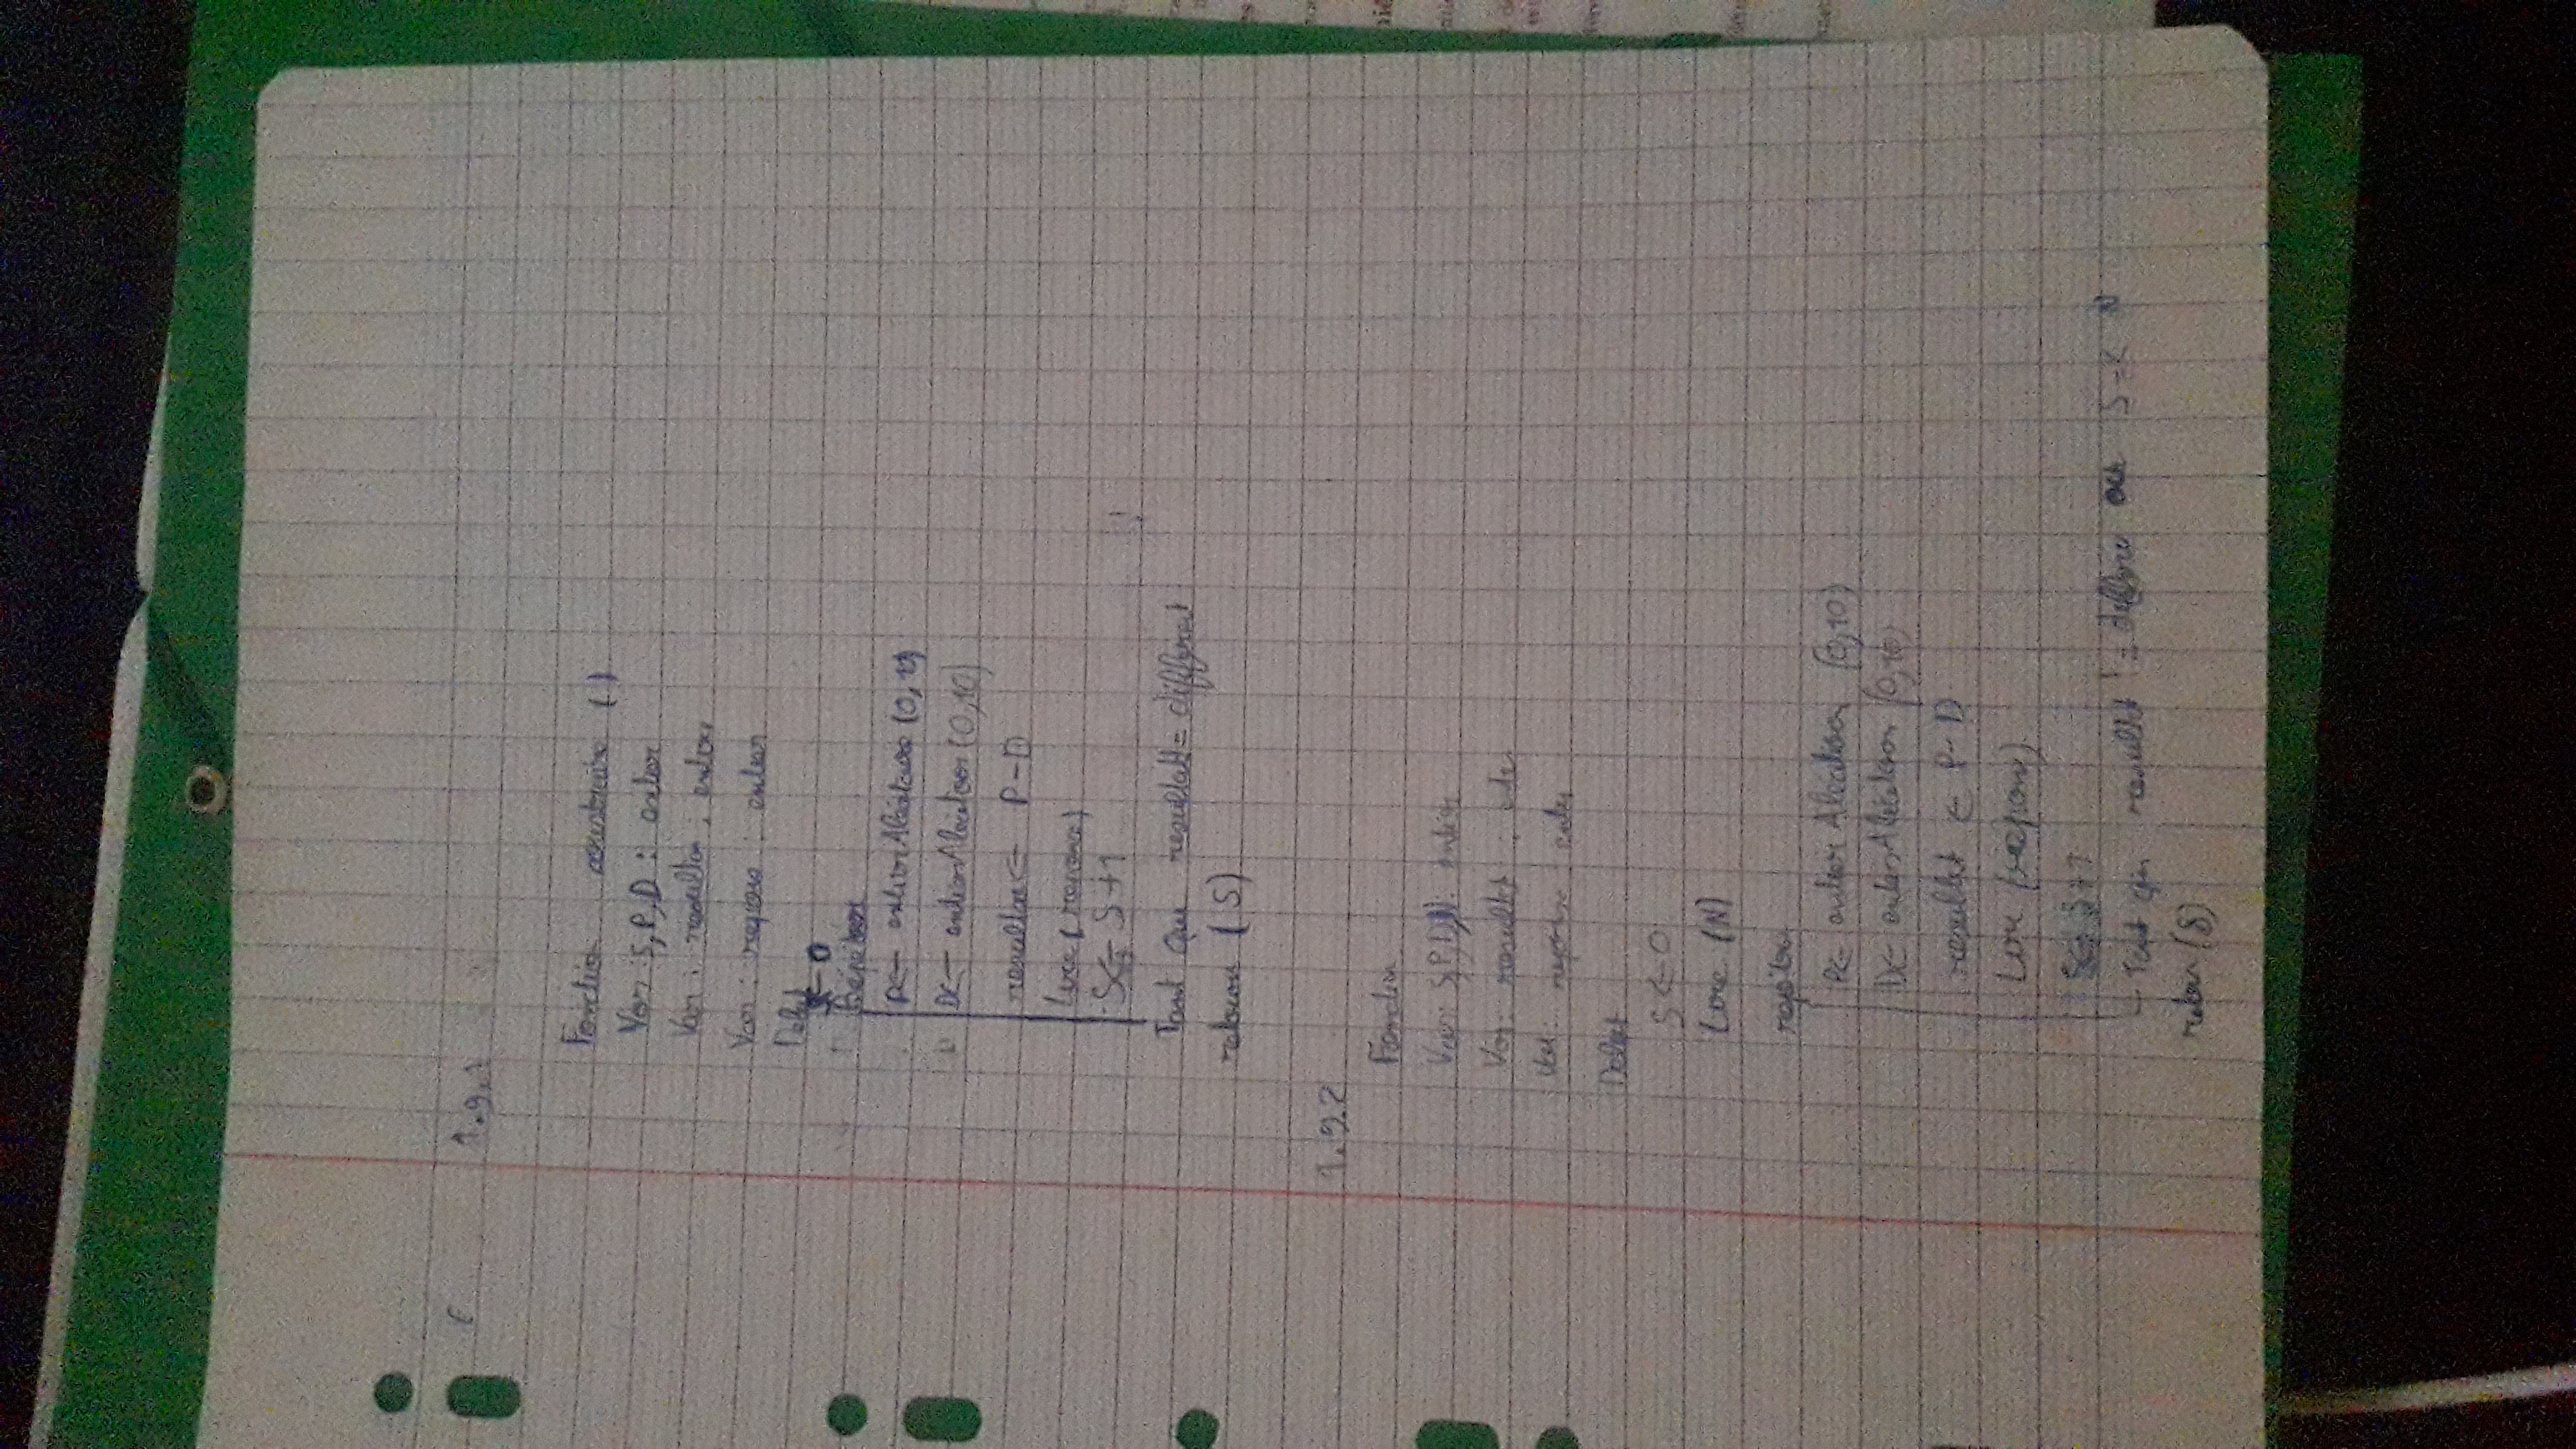 1.9.1
Fonction soustraire ( )
Var : S, P, D : entier
Var : resultat : entier
Var : reponse : entier
Debut
S ← 0
Répéter
P ← entierAléatoire (0, 10)
D ← entierAléatoire (0, 10)
resultat ← P - D
Lire ( reponse )
S ← S + 1
Tant que resultat != different
retour ( S )
1.9.2
Fonction
Var : S, P, D, N : entier
Var : resultat : entier
Var : reponse : entier
Debut
S ← 0
Lire (N)
repeter
P ← entier Aléatoire (0, 10)
D ← entierAléatoire (0, 10)
resultat ← P - D
Lire (reponse)
S ← S + 1
Tant que resultat != ou S =< N
retour (S)